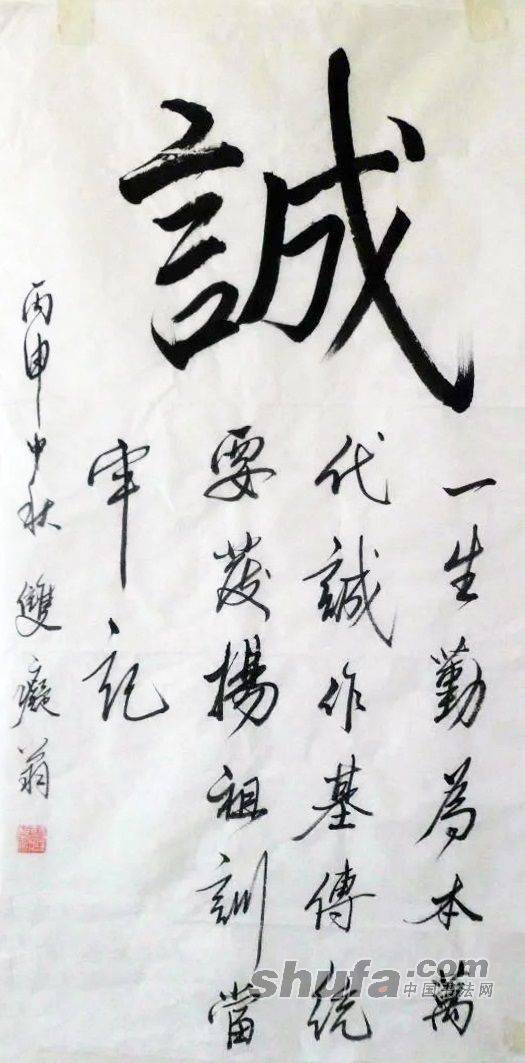 誠
一生勤為本萬
代誠作基傳統
要發揚祖訓當
牢記
丙申中秋 雙癡翁
shufa.com
中国书法网